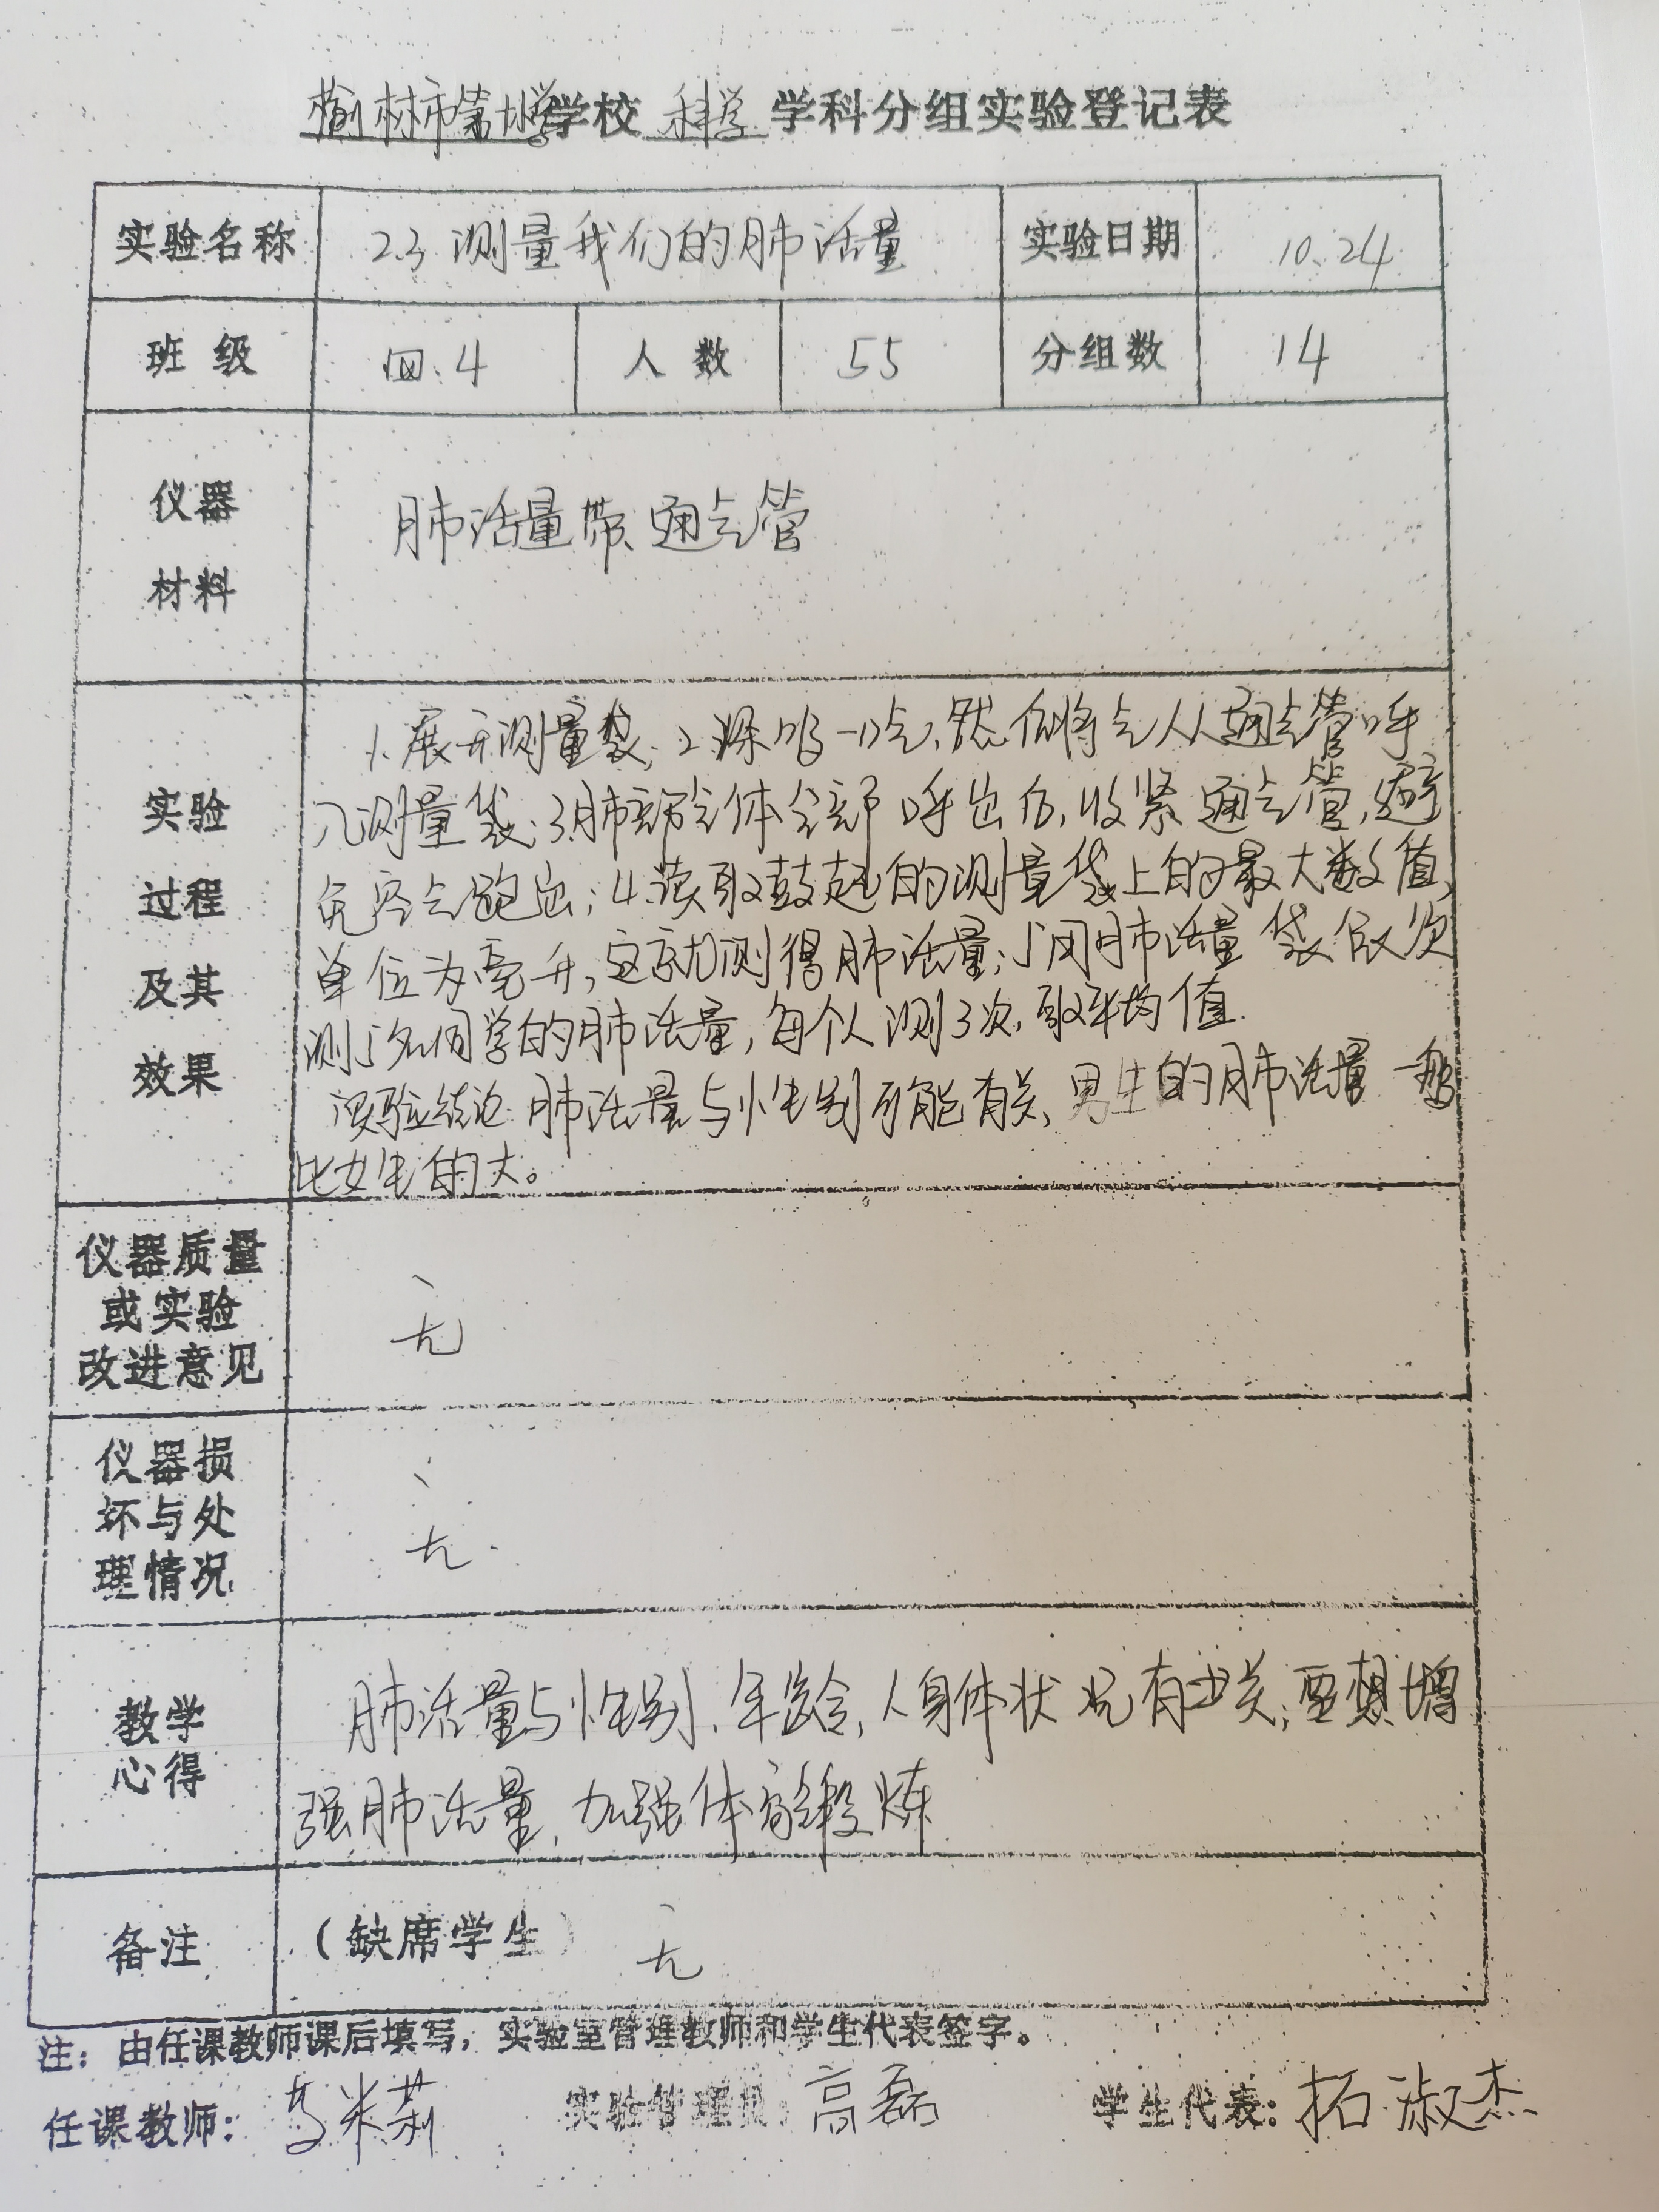 榆林市第十小学学校 科学 学科分组实验登记表
实验名称 2.3 测量我们的肺活量 实验日期 10.24
班 级 四.4 人 数 55 分组数 14
仪器
材料
肺活量带、通气管
实验
过程
及其
效果
1.展开测量袋;2.深吸一口气,然后将气从通气管呼
入测量袋;3.肺部气体全部呼出后,收紧通气管,避
免空气跑出;4.读取鼓起的测量袋上的最大数值,
单位为毫升,这就测得肺活量;5用肺活量袋依次
测5名同学的肺活量,每个人测3次,取平均值.
实验结论:肺活量与性别可能有关,男生的肺活量一般
比女生的大。
仪器质量
或实验
改进意见
无
仪器损
坏与处
理情况
无
教学
心得
肺活量与性别、年龄,人身体状况有关;要想增
强肺活量,加强体育锻炼
备注 (缺席学生) 无
注：由任课教师课后填写，实验室管理教师和学生代表签字。
任课教师: 实验管理员: 高磊 学生代表: 拓淑杰